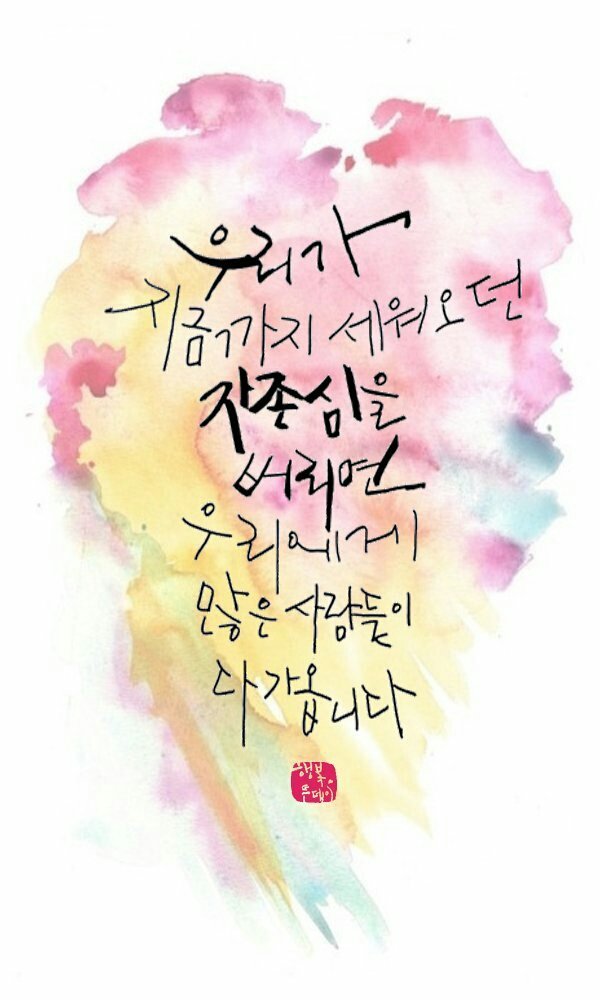 우리가
지금까지 세워오던
자존심을
버리면
우리에게
많은 사람들이
다가옵니다
행복한
투데이